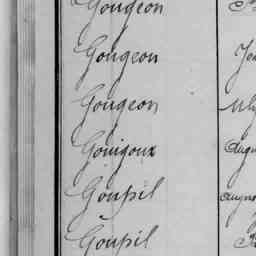 Gougeon
Gougeon
Gougeon
Gouigoux
Goupil
Goupil